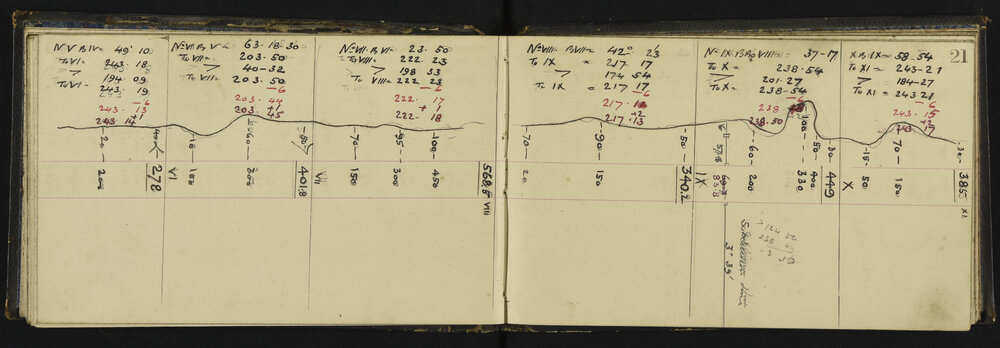 21
No V B IV = 49° 10
To VI = 243. 18
>
194 09
To VI = 243. 19
-6
243. 13
+1
243. 14
No VI B V = 63-18-30
To VII = 203. 50
> 40-32
To VII = 203. 50
-6
203. 44
+1
203. 45
No VII B VI = 23. 50
To VIII = 222 23
> 198 33
To VIII = 222 23
-6
222. 17
+1
222- 18
No VIII B VII = 42° 23
To IX = 217. 17
> 174 54
To IX = 217 17
-6
217. 11
+2
217. 13
37-17
To X = 238-54
> 201-27
To X = 238-54
-6
238.
238.50
X B IX = 58-54
To XI = 243-21
> 184-27
To XI = 243 21
-6
243. 15
+2
243. 17
-20-
-18-
-560-
-70-
-95-
-100-
-70-
-90-
-50-
-60-
-100-
-50-
-30-
-15-
70-
-30-
200
278
VI
100
350
401.8
VII
150
300
450
568.5
VIII
20
150
340.2
IX
838
200
330
400
449
X
50
150
385
XI
3° 39'